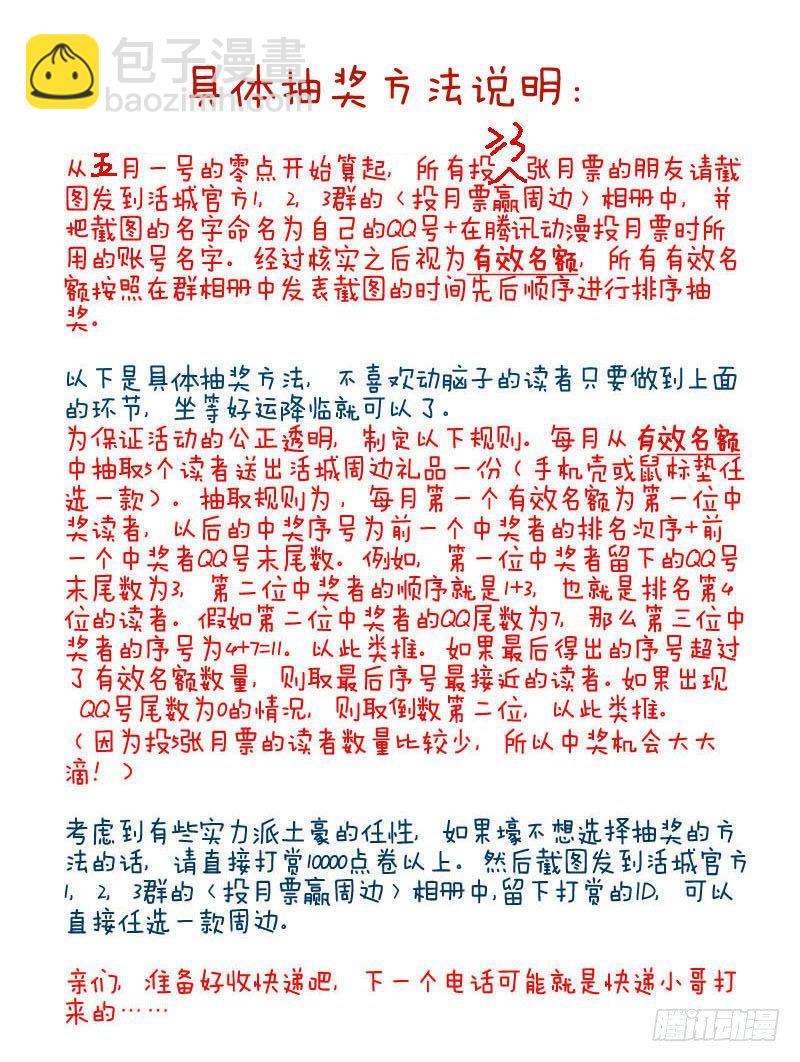 包子漫畫
baozimh.com
具体抽奖方法说明：
≥3
从五月一号的零点开始算起，所有投 张月票的朋友请截
图发到活城官方1，2，3群的〈投月票赢周边〉相册中，并
把截图的名字命名为自己的QQ号+在腾讯动漫投月票时所
用的账号名字。经过核实之后视为有效名额，所有有效名
额按照在群相册中发表截图的时间先后顺序进行排序抽
奖。
以下是具体抽奖方法，不喜欢动脑子的读者只要做到上面
的环节，坐等好运降临就可以了。
为保证活动的公正透明，制定以下规则。每月从有效名额
中抽取5个读者送出活城周边礼品一份（手机壳或鼠标垫任
选一款）。抽取规则为，每月第一个有效名额为第一位中
奖读者，以后的中奖序号为前一个中奖者的排名次序+前
一个中奖者QQ号末尾数。例如，第一位中奖者留下的QQ号
末尾数为3，第二位中奖者的顺序就是1+3，也就是排名第4
位的读者。假如第二位中奖者的QQ尾数为7，那么第三位中
奖者的序号为4+7=11。以此类推。如果最后得出的序号超过
了有效名额数量，则取最后序号最接近的读者。如果出现
QQ号尾数为0的情况，则取倒数第二位，以此类推。
（因为投5张月票的读者数量比较少，所以中奖机会大大
滴！）
考虑到有些实力派土豪的任性，如果壕不想选择抽奖的方
法的话，请直接打赏10000点卷以上。然后截图发到活城官方
1，2，3群的〈投月票赢周边〉相册中，留下打赏的ID，可以
直接任选一款周边。
亲们，准备好收快递吧，下一个电话可能就是快递小哥打
来的……
腾讯动漫